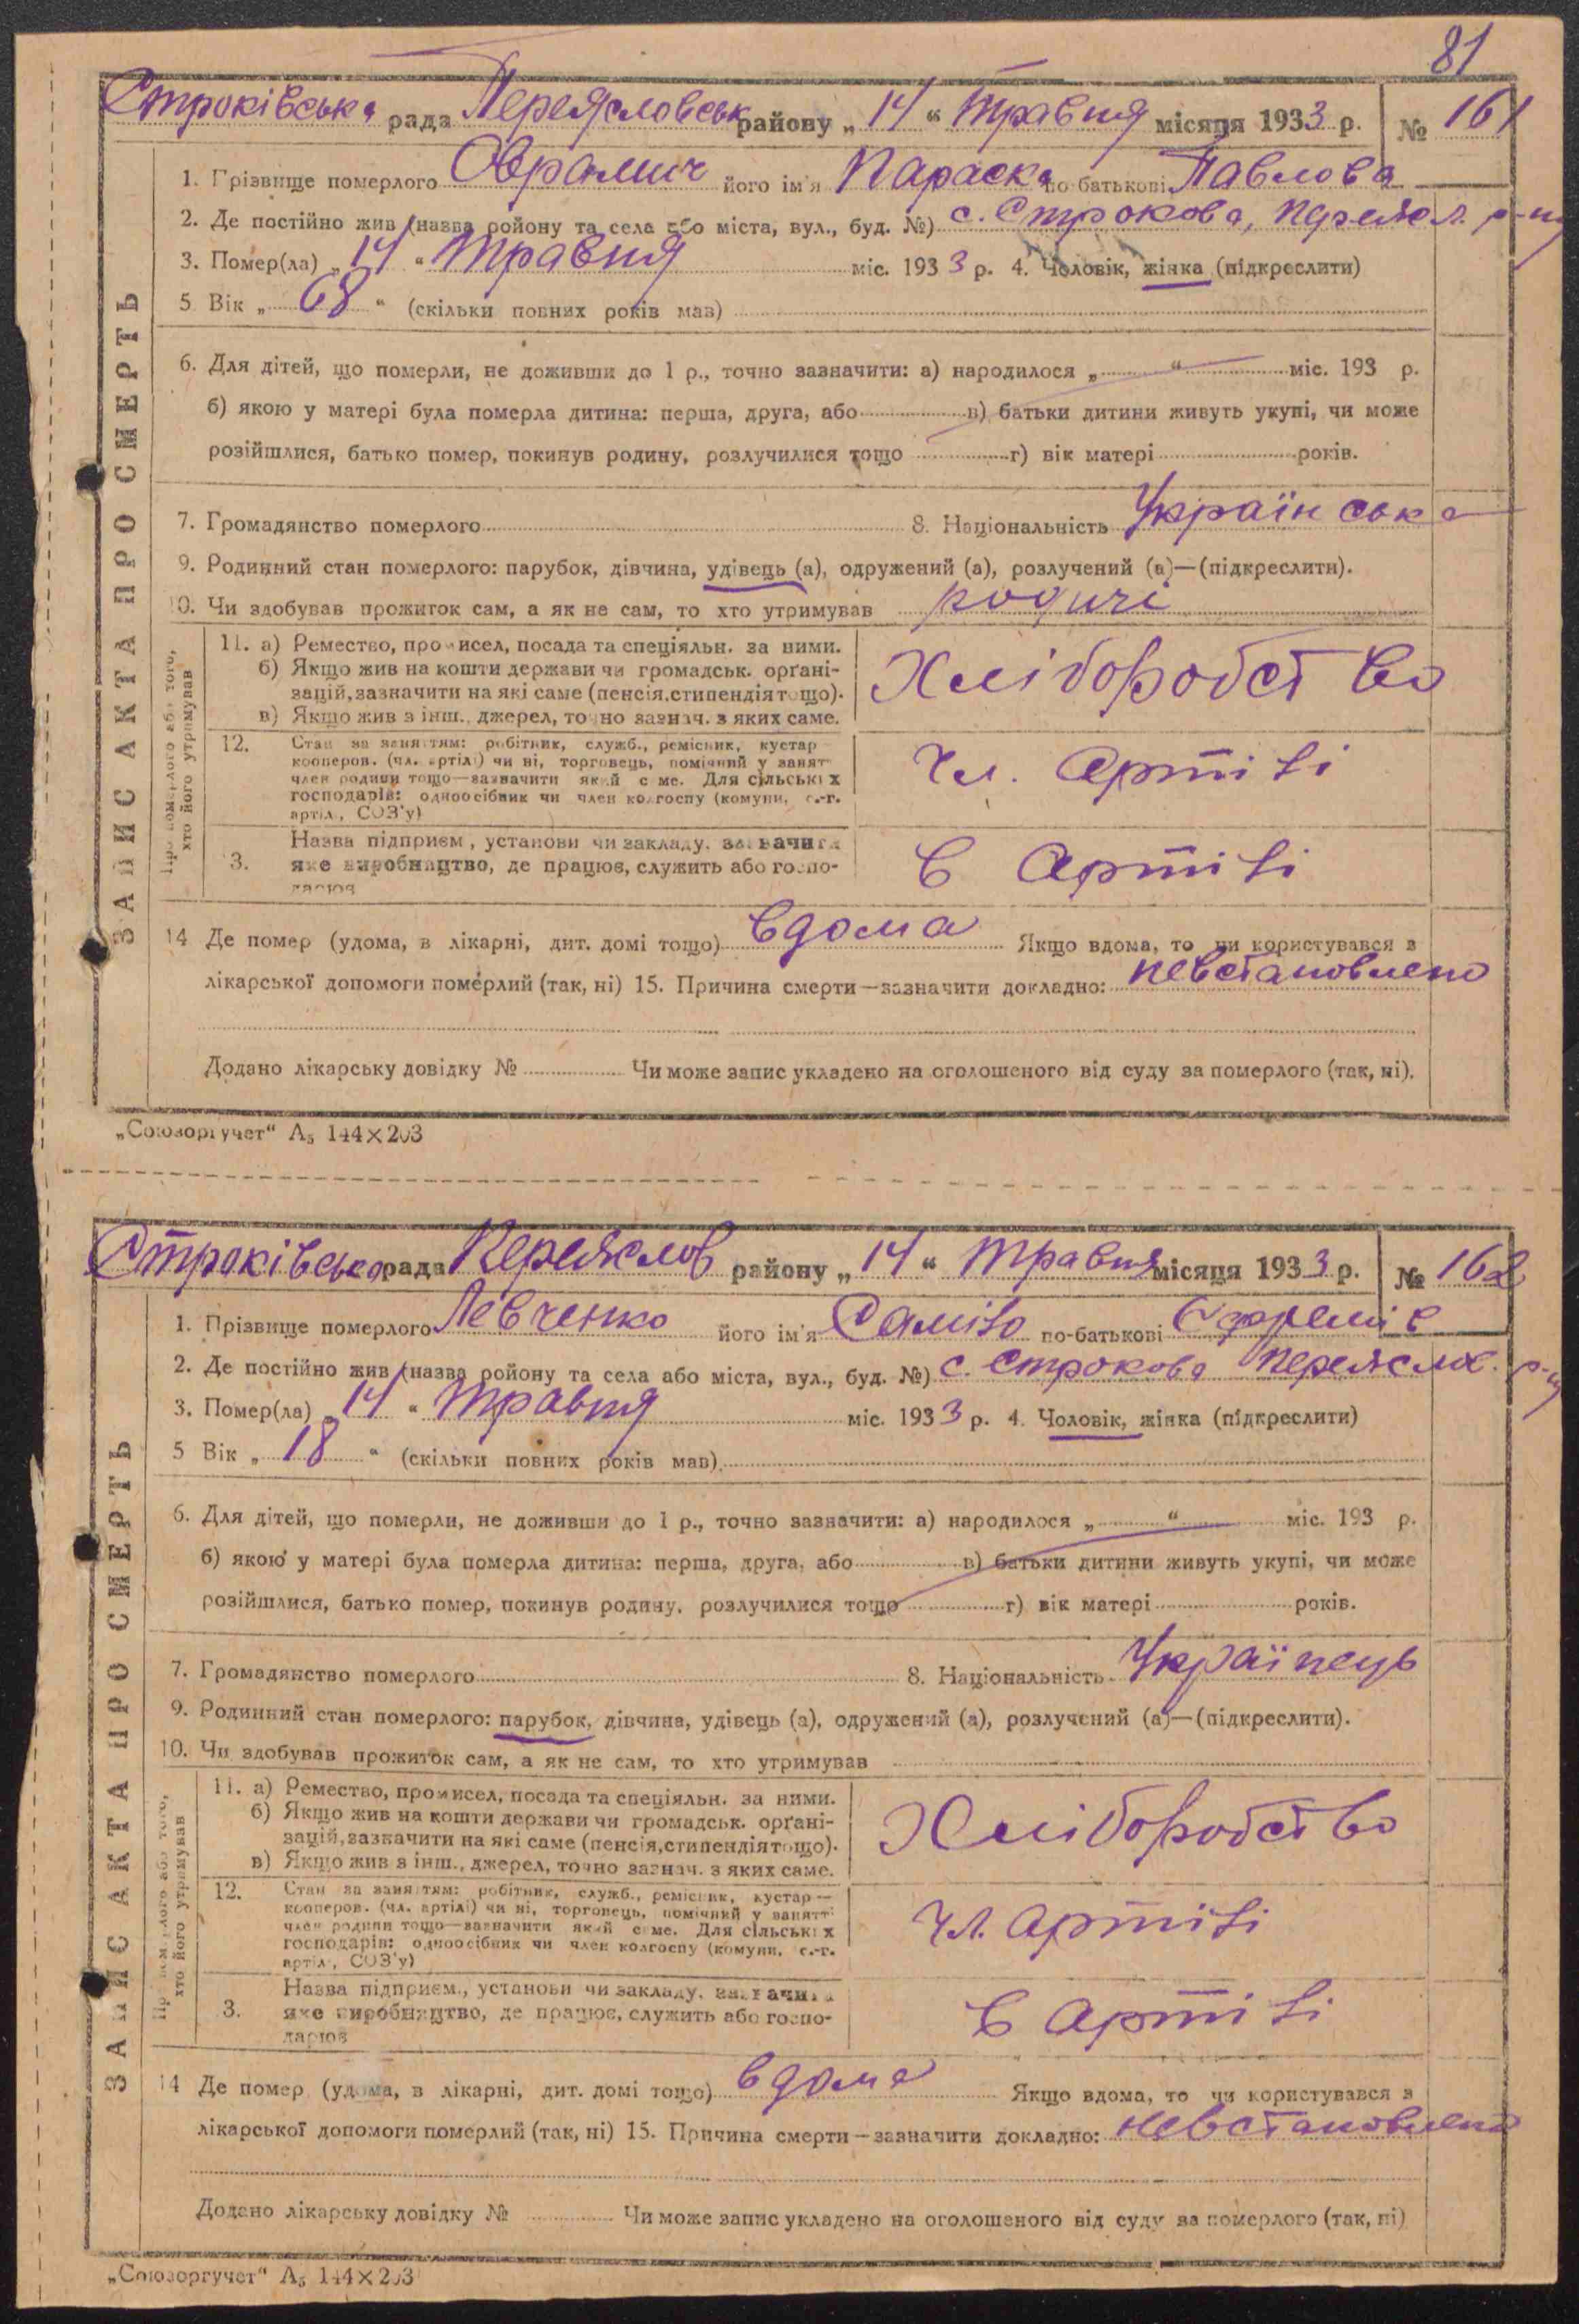 81
Строківська рада Переясловськ району „14“ травня місяця 1933 р. № 161
1. Прізвище померлого Аврамич його ім'я Параска по батькові Павлова
2. Де постійно жив (назва ройону та села або міста, вул., буд. №) с. Строкова, Переясл. р-ну
3. Помер(ла) „14“ травня міс. 1933 р. 4. Чоловік, жінка (підкреслити)
5 Вік „68“ (скільки повних років мав)
6. Для дітей, що померли, не доживши до 1 р., точно зазначити: а) народилося „ “ міс. 193 р.
б) якою у матері була померла дитина: перша, друга, або в) батьки дитини живуть укупі, чи може
розійшлися, батько помер, покинув родину, розлучилися тощо г) вік матері років.
7. Громадянство померлого 8. Національність Українська
9. Родинний стан померлого: парубок, дівчина, удівець (а), одружений (а), розлучений (а)—(підкреслити).
10. Чи здобував прожиток сам, а як не сам, то хто утримував родичі
11. а) Ремество, промисел, посада та спеціяльн. за ними.
б) Якщо жив на кошти держави чи громадськ. орґані-
зацій, зазначити на які саме (пенсія, стипендія тощо).
в) Якщо жив з інш., джерел, точно зазнач. з яких саме.
Хліборобство
12. Стан за заняттям: робітник, служб., ремісник, кустар—
кооперов. (чл. артілі) чи ні, торговець, помічний у занятт
член родини тощо—зазначити який саме. Для сільських
господарів: одноосібник чи член колгоспу (комуни, с.-г.
артіл., СОЗ'у)
Чл. Артілі
3. Назва підприєм., установи чи закладу, зазначити
яке виробництво, де працює, служить або госпо-
дарює
В Артілі
14 Де помер (удома, в лікарні, дит. домі тощо) вдома Якщо вдома, то чи користувався з
лікарської допомоги померлий (так, ні) 15. Причина смерти—зазначити докладно: невстановлено
Додано лікарську довідку № Чи може запис укладено на оголошеного від суду за померлого (так, ні).
ЗАПИС АКТА ПРО СМЕРТЬ
Про померлого або того,
хто його утримував
„Союзоргучет“ А₅ 144×203
Строківська рада Переяслов району „14“ травня місяця 1933 р. № 162
1. Прізвище померлого Левченко його ім'я Саміло по-батькові Єфремів
2. Де постійно жив (назва ройону та села або міста, вул., буд. №) с. Строкова Переясл. р-ну
3. Помер(ла) „14“ травня міс. 1933 р. 4. Чоловік, жінка (підкреслити)
5 Вік „18“ (скільки повних років мав)
6. Для дітей, що померли, не доживши до 1 р., точно зазначити: а) народилося „ “ міс. 193 р.
б) якою у матері була померла дитина: перша, друга, або в) батьки дитини живуть укупі, чи може
розійшлися, батько помер, покинув родину, розлучилися тощо г) вік матері років.
7. Громадянство померлого 8. Національність Українець
9. Родинний стан померлого: парубок, дівчина, удівець (а), одружений (а), розлучений (а)—(підкреслити).
10. Чи здобував прожиток сам, а як не сам, то хто утримував
11. а) Ремество, промисел, посада та спеціяльн. за ними.
б) Якщо жив на кошти держави чи громадськ. орґані-
зацій, зазначити на які саме (пенсія, стипендія тощо).
в) Якщо жив з інш., джерел, точно зазнач. з яких саме.
Хліборобство
12. Стан за заняттям: робітник, служб., ремісник, кустар—
кооперов. (чл. артілі) чи ні, торговець, помічний у занятті
член родини тощо—зазначити який саме. Для сільських
господарів: одноосібник чи член колгоспу (комуни, с.-г.
артіл., СОЗ'у)
Чл. Артілі
3. Назва підприєм., установи чи закладу, зазначити
яке виробництво, де працює, служить або госпо-
дарює
В Артілі
14 Де помер (удома, в лікарні, дит. домі тощо) вдома Якщо вдома, то чи користувався з
лікарської допомоги померлий (так, ні) 15. Причина смерти—зазначити докладно: невстановлено
Додано лікарську довідку № Чи може запис укладено на оголошеного від суду за померлого (так, ні)
ЗАПИС АКТА ПРО СМЕРТЬ
Про померлого або того,
хто його утримував
„Союзоргучет“ А₅ 144×203